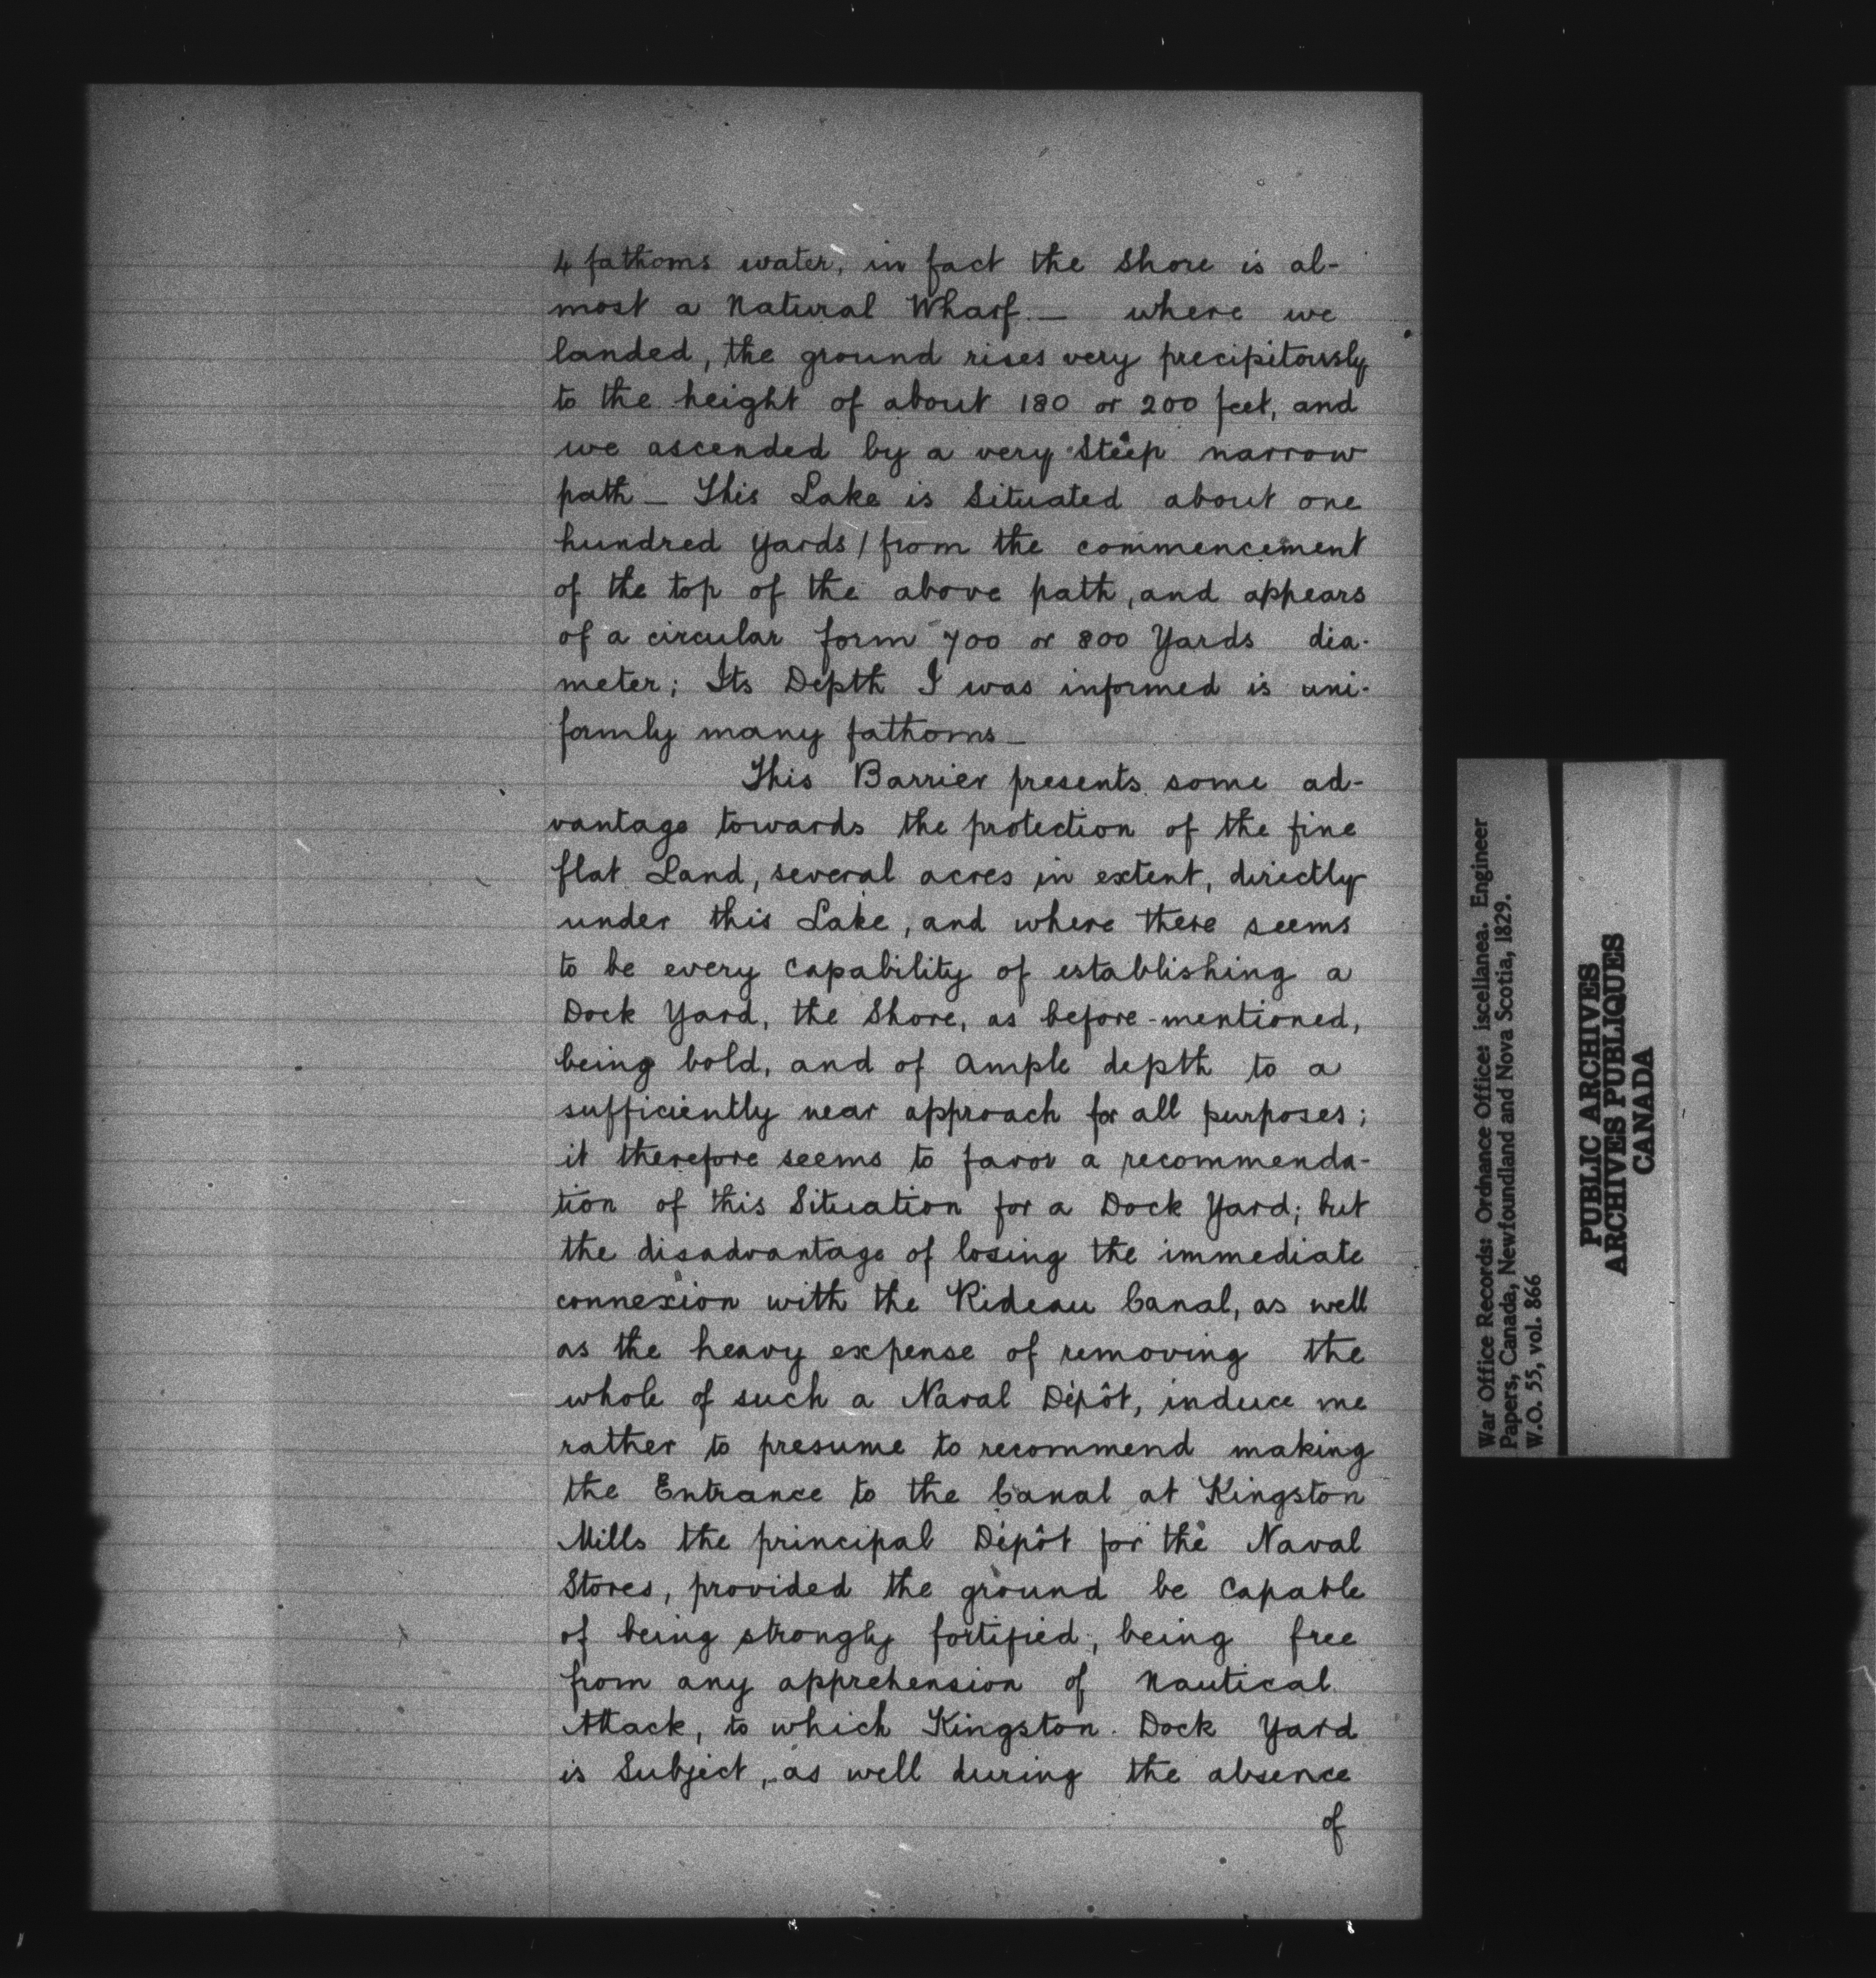 4 fathoms water, in fact the Shore is al-
most a Natural Wharf — where we
landed, the ground rises very precipitously
to the height of about 180 or 200 feet, and
we ascended by a very Steep narrow
path — This Lake is Situated about one
hundred Yards / from the commencement
of the top of the above path, and appears
of a circular form 700 or 800 Yards dia-
meter; Its Depth I was informed is uni-
formly many fathoms —
This Barrier presents some ad-
vantage towards the protection of the fine
flat Land, several acres in extent, directly
under this Lake, and where there seems
to be every Capability of establishing a
Dock Yard, the Shore, as before-mentioned,
being bold, and of Ample depth to a
sufficiently near approach for all purposes;
it therefore seems to favor a recommenda-
tion of this Situation for a Dock Yard; but
the disadvantage of losing the immediate
connexion with the Rideau Canal, as well
as the heavy expense of removing the
whole of such a Naval Dépôt, induce me
rather to presume to recommend making
the Entrance to the Canal at Kingston
Mills the principal Dépôt for the Naval
Stores, provided the ground be Capable
of being strongly fortified, being free
from any apprehension of Nautical
Attack, to which Kingston Dock Yard
is Subject, as well during the absence
of
War Office Records: Ordnance Office: iscellanea. Engineer
Papers, Canada, Newfoundland and Nova Scotia, 1829.
W.O. 55, vol. 866
PUBLIC ARCHIVES
ARCHIVES PUBLIQUES
CANADA